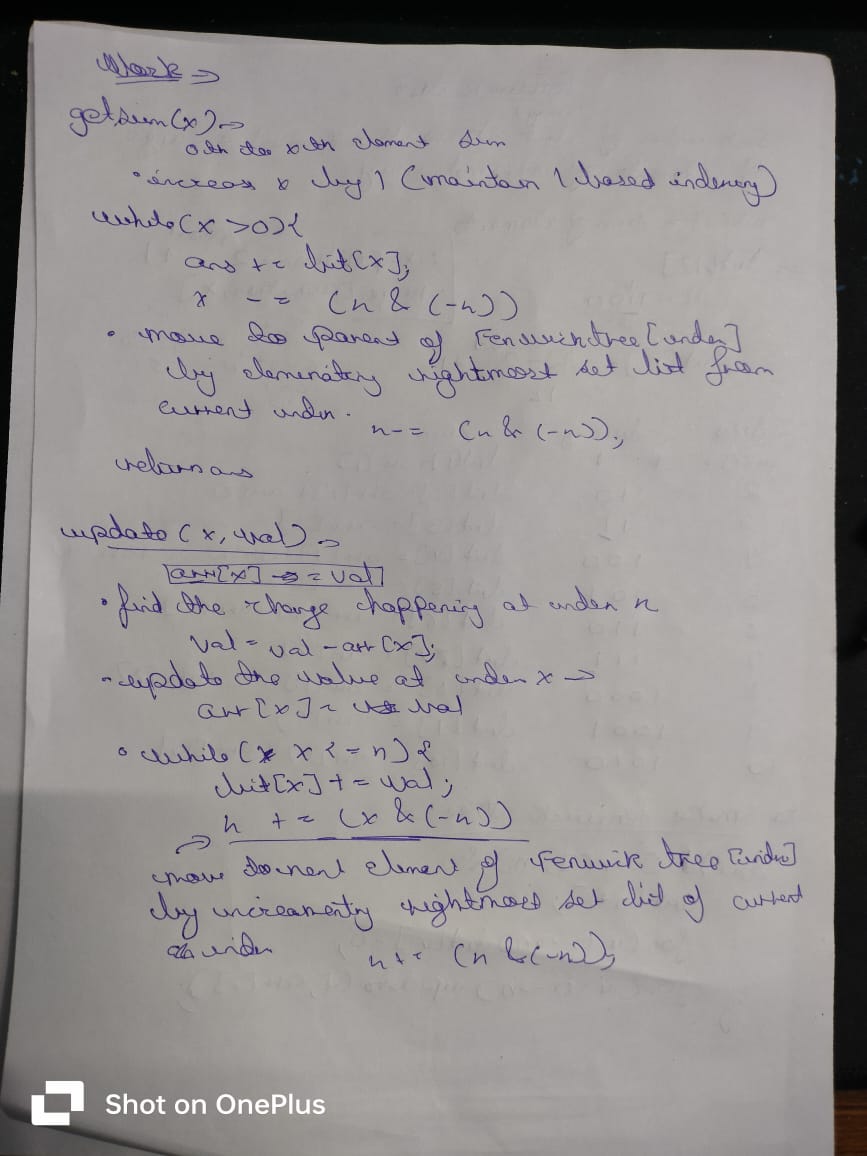 Work →
getsum(x) →
0th to xth element sum
• increas x by 1 (maintain 1 based indexing)
while(x >0){
ans += bit[x];
x -= (x & (-x))
• move to parent of Fenwicktree[index]
by eleminating rightmost set bit from
current index.
x -= (x & (-x));
return ans
update(x, val) →
arr[x] = val
• find the change happening at index x
val = val - arr[x];
• update the value at index x →
arr[x] = val
• while(x <= n) {
bit[x] += val;
x += (x & (-x))
→
move to next element of Fenwik tree [index]
by increamenting rightmost set bit of current
index
x += (x & (-x));
Shot on OnePlus